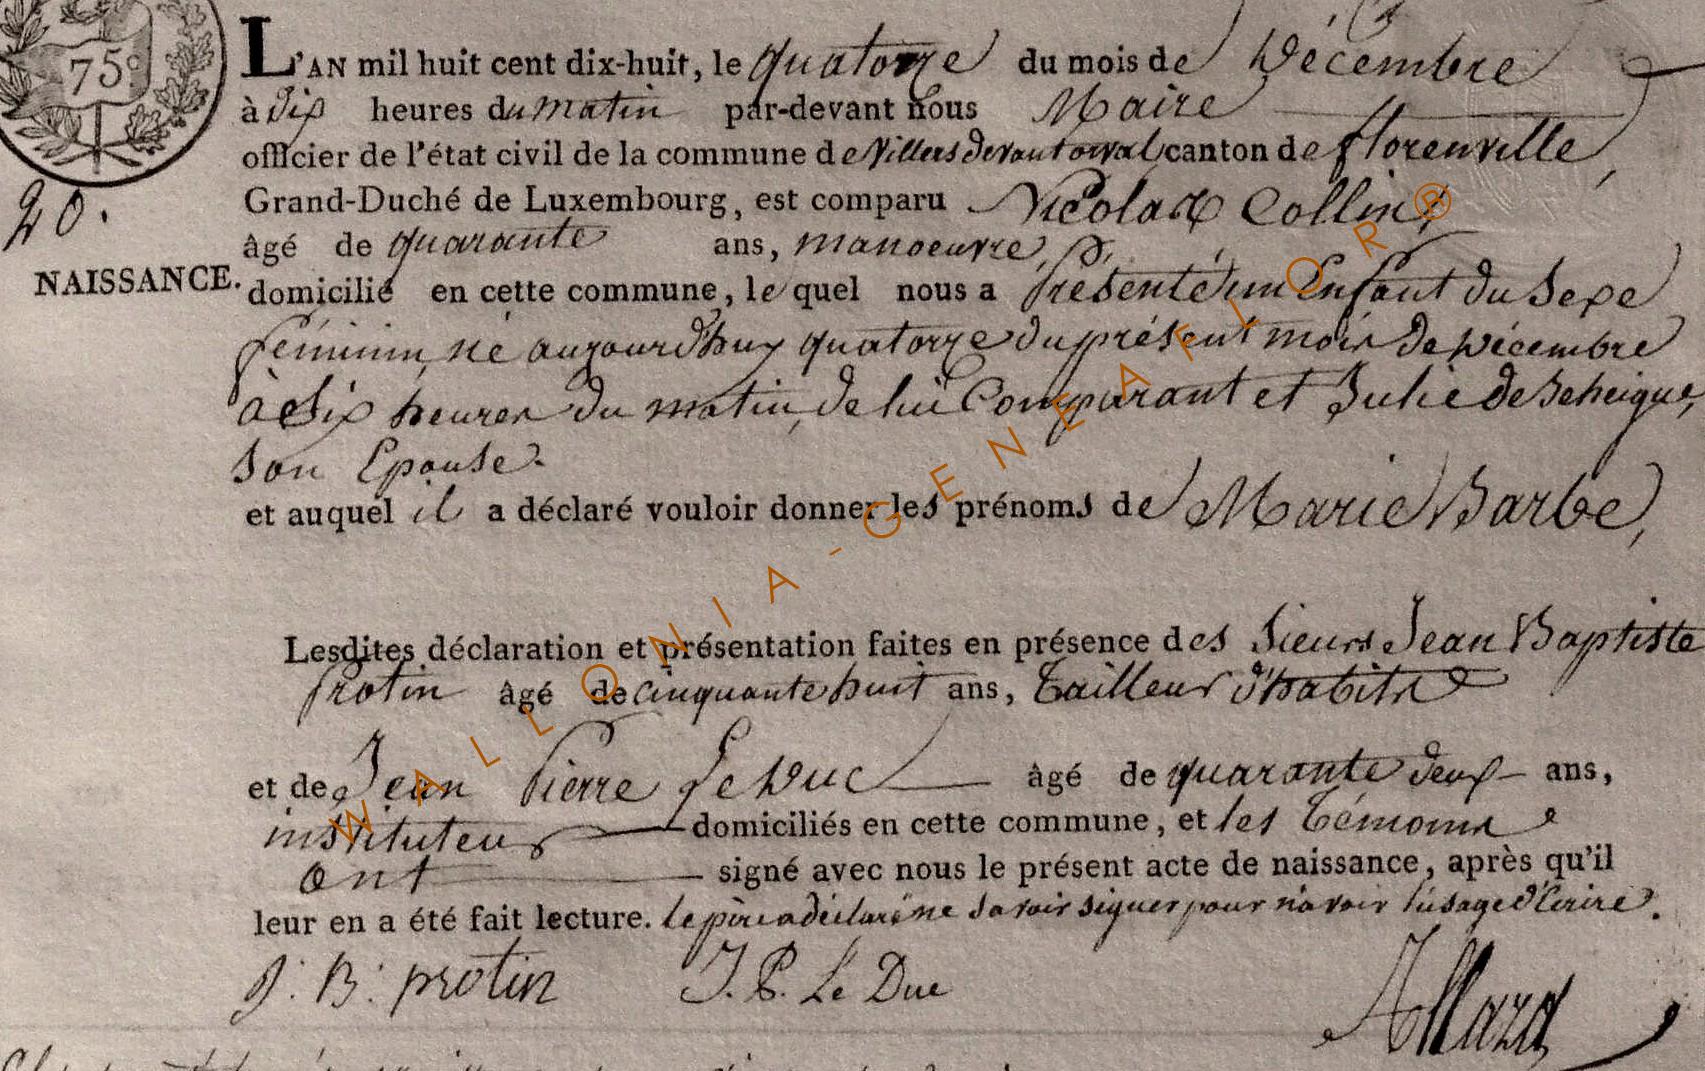 75c
L'AN mil huit cent dix-huit, le quatorze du mois de Décembre
à dix heures du matin par-devant nous Maire
officier de l'état civil de la commune de Villers devant orval canton de florenville,
Grand-Duché de Luxembourg, est comparu Nicolas Collin,
20.
âgé de quarante ans, manoeuvre,
NAISSANCE.
domicilié en cette commune, le quel nous a présenté un Enfant du Sexe
féminin, né aujourd'huy quatorze du présent mois de Décembre
à Six heures du matin, de lui Comparant et Julie de
Son Epouse.
et auquel il a déclaré vouloir donner les prénoms de Marie Barbe,
Lesdites déclaration et présentation faites en présence des Sieurs Jean Baptiste
protin âgé de cinquante huit ans, Tailleur d'habits
et de Jean Pierre Le Duc âgé de quarante deux ans,
instituteur domiciliés en cette commune, et les Témoins
ont signé avec nous le présent acte de naissance, après qu'il
leur en a été fait lecture. le père a déclaré ne Savoir signer pour n'avoir l'usage d'Ecrire.
J: B: protin J. P. Le Duc Allard
WALLONIA-GENEAFLOR®